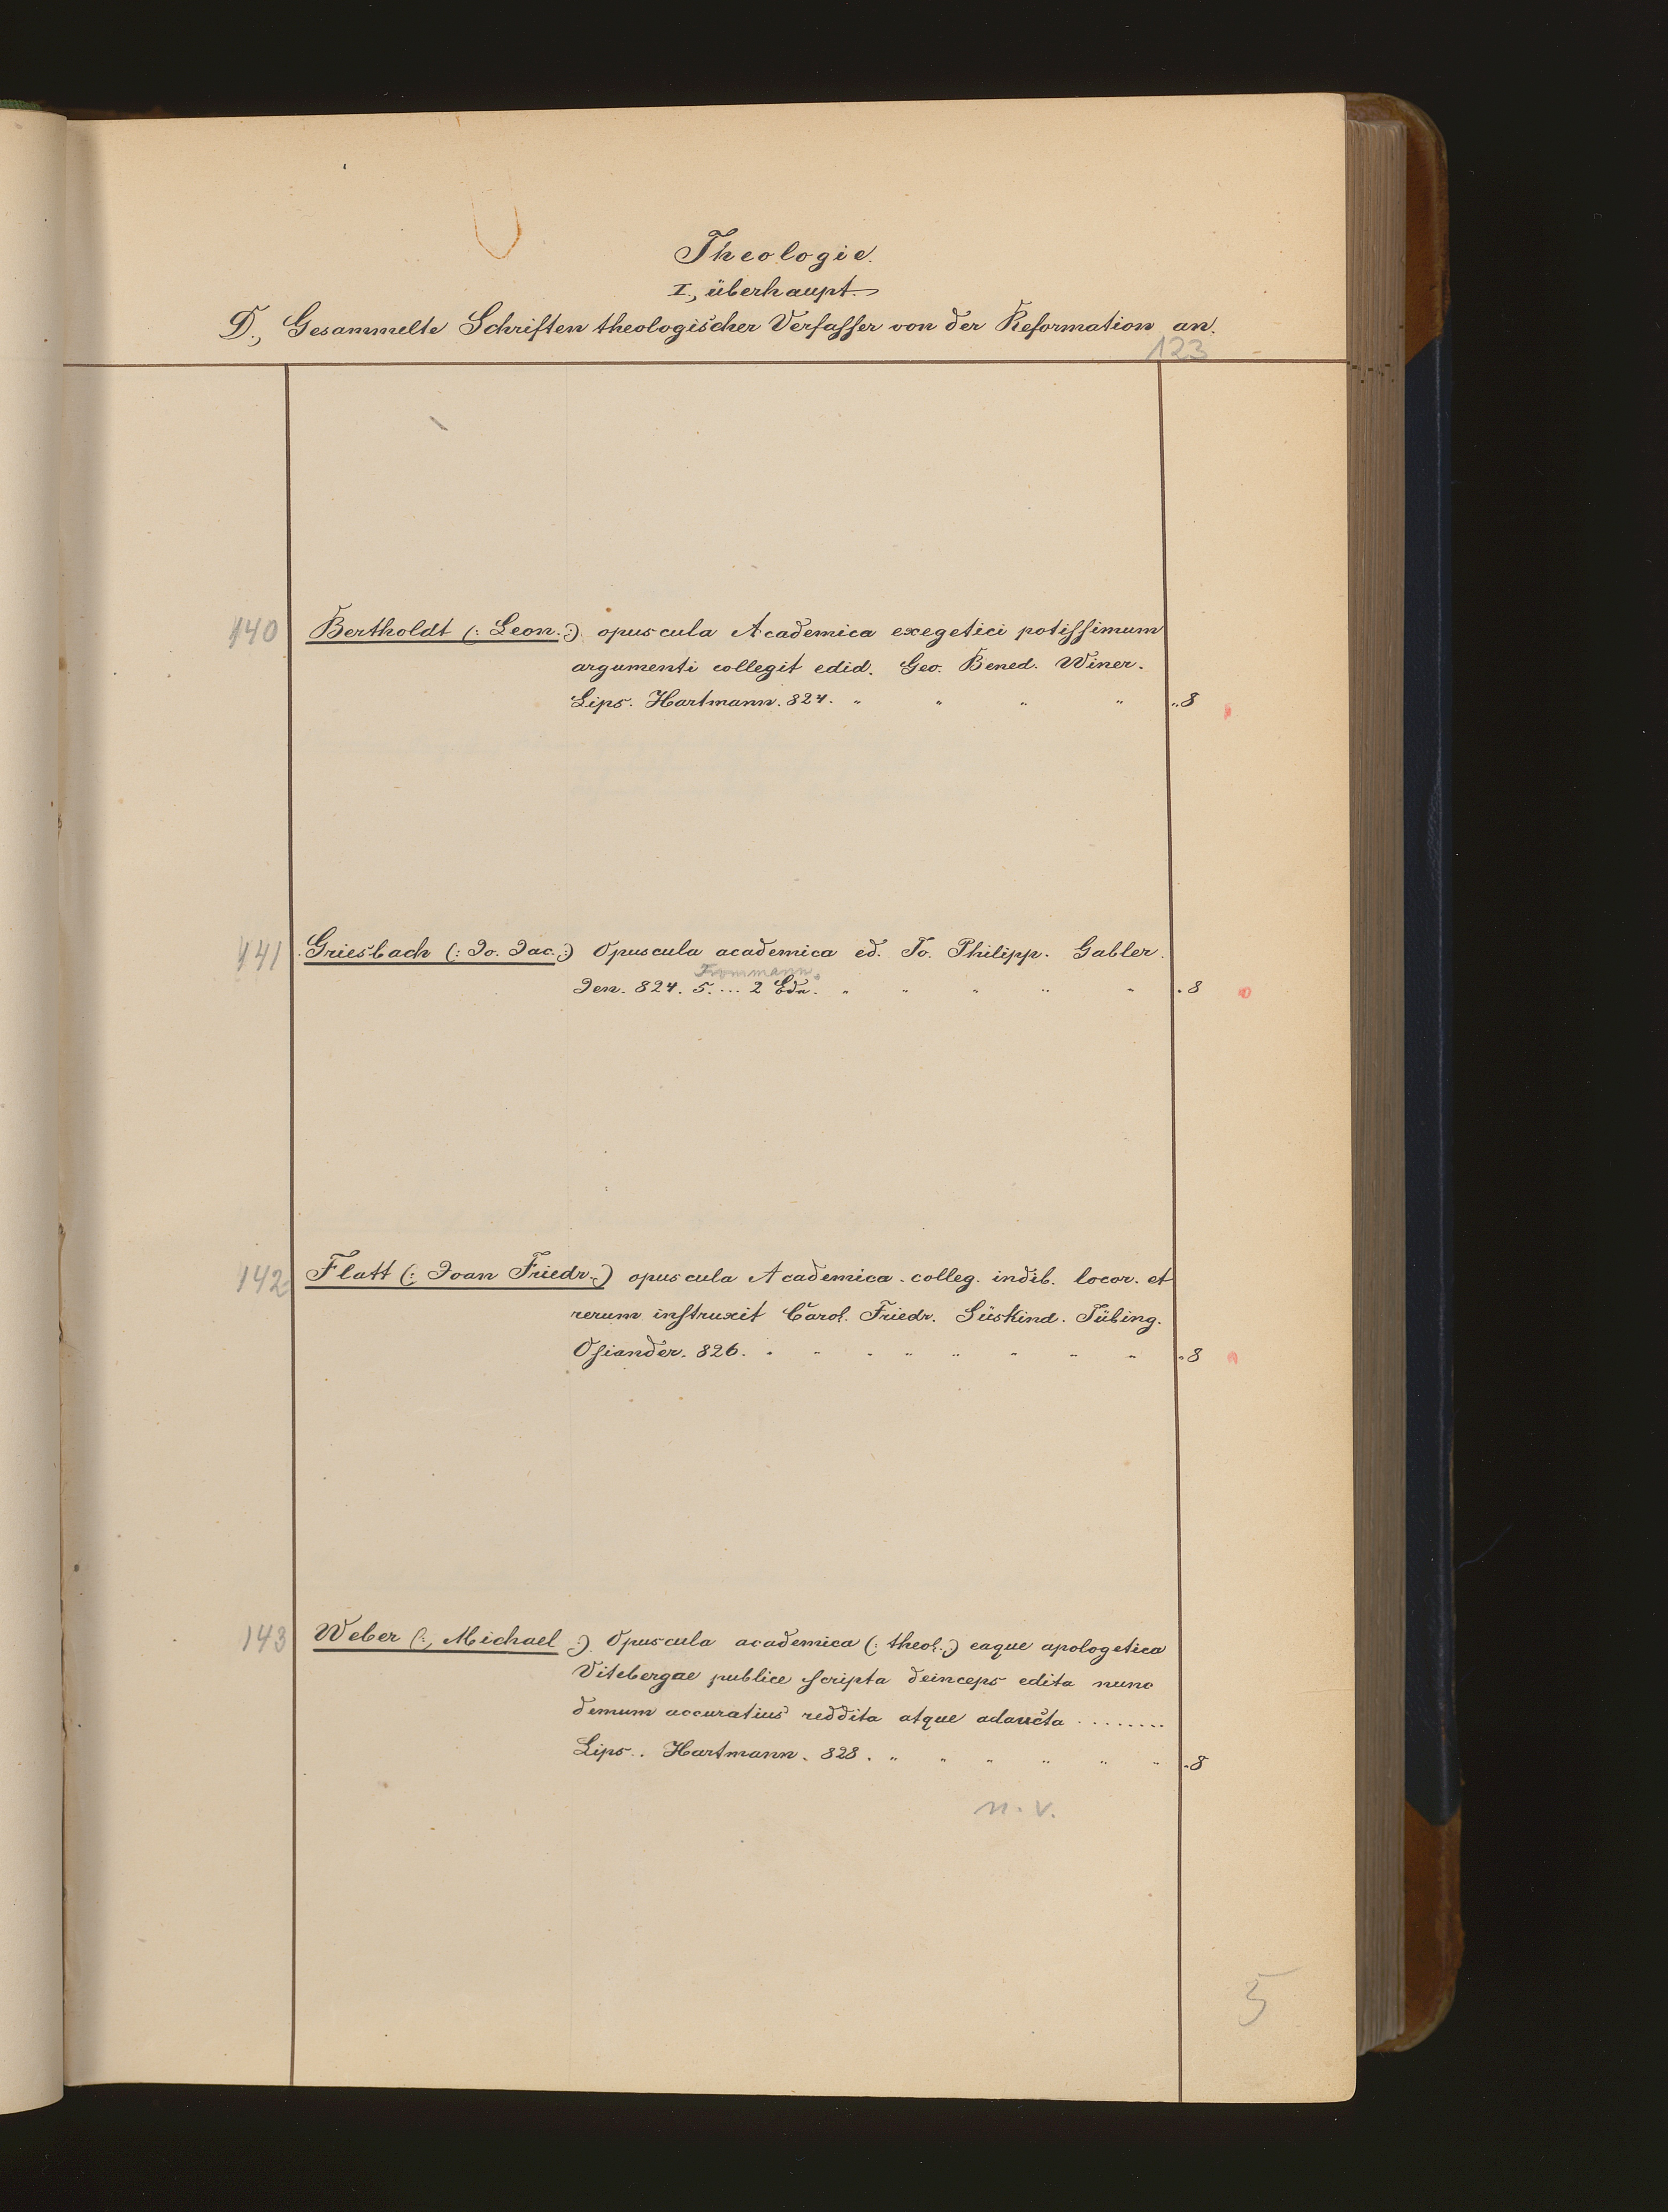 Theologie.
I., überhaupt.
D., Gesammelte Schriften theologischer Verfasser von der Reformation an.
123
140 Bertholdt (: Leon. :) opuscula Academica exegetici potissimum
argumenti collegit edid. Geo. Bened. Winer.
Lips. Hartmann. 824. " " " " " 8
141 Griesbach (: Jo. Jac. :) Opuscula academica ed. Jo. Philipp. Gabler.
Frommann.
Jen. 824. 5. ... 2 Bde. " " " " " " 8
142 Flatt (: Joan Friedr. :) opuscula Academica. colleg. indib. locor. et
rerum instruxit Carol. Friedr. Süskind. Tübing.
Osiander. 826. " " " " " " " " " 8
143 Weber (: Michael :) Opuscula academica (: theol. :) eaque apologetica
Vitebergae publice scripta deinceps edita nunc
demum accuratius reddita atque adaucta ........
Lips.. Hartmann. 828. " " " " " " " 8
n. v.
5